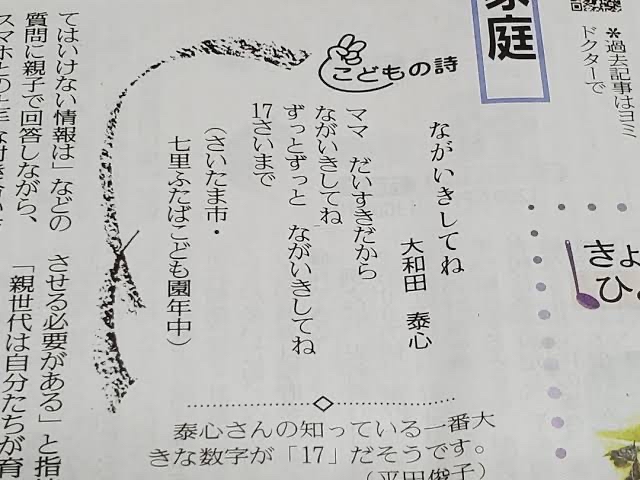 家庭
*過去記事はヨミ
ドクターで
こどもの詩
ながいきしてね
大和田 泰心
ママ だいすきだから
ながいきしてね
ずっとずっと ながいきしてね
17さいまで
(さいたま市・
七里ふたばこども園年中)
泰心さんの知っている一番大
きな数字が「17」だそうです。
(平田俊子)
きょ
ひ
てはいけない情報は」などの
質問に親子で回答しながら、
させる必要がある」と指
「親世代は自分たちが育